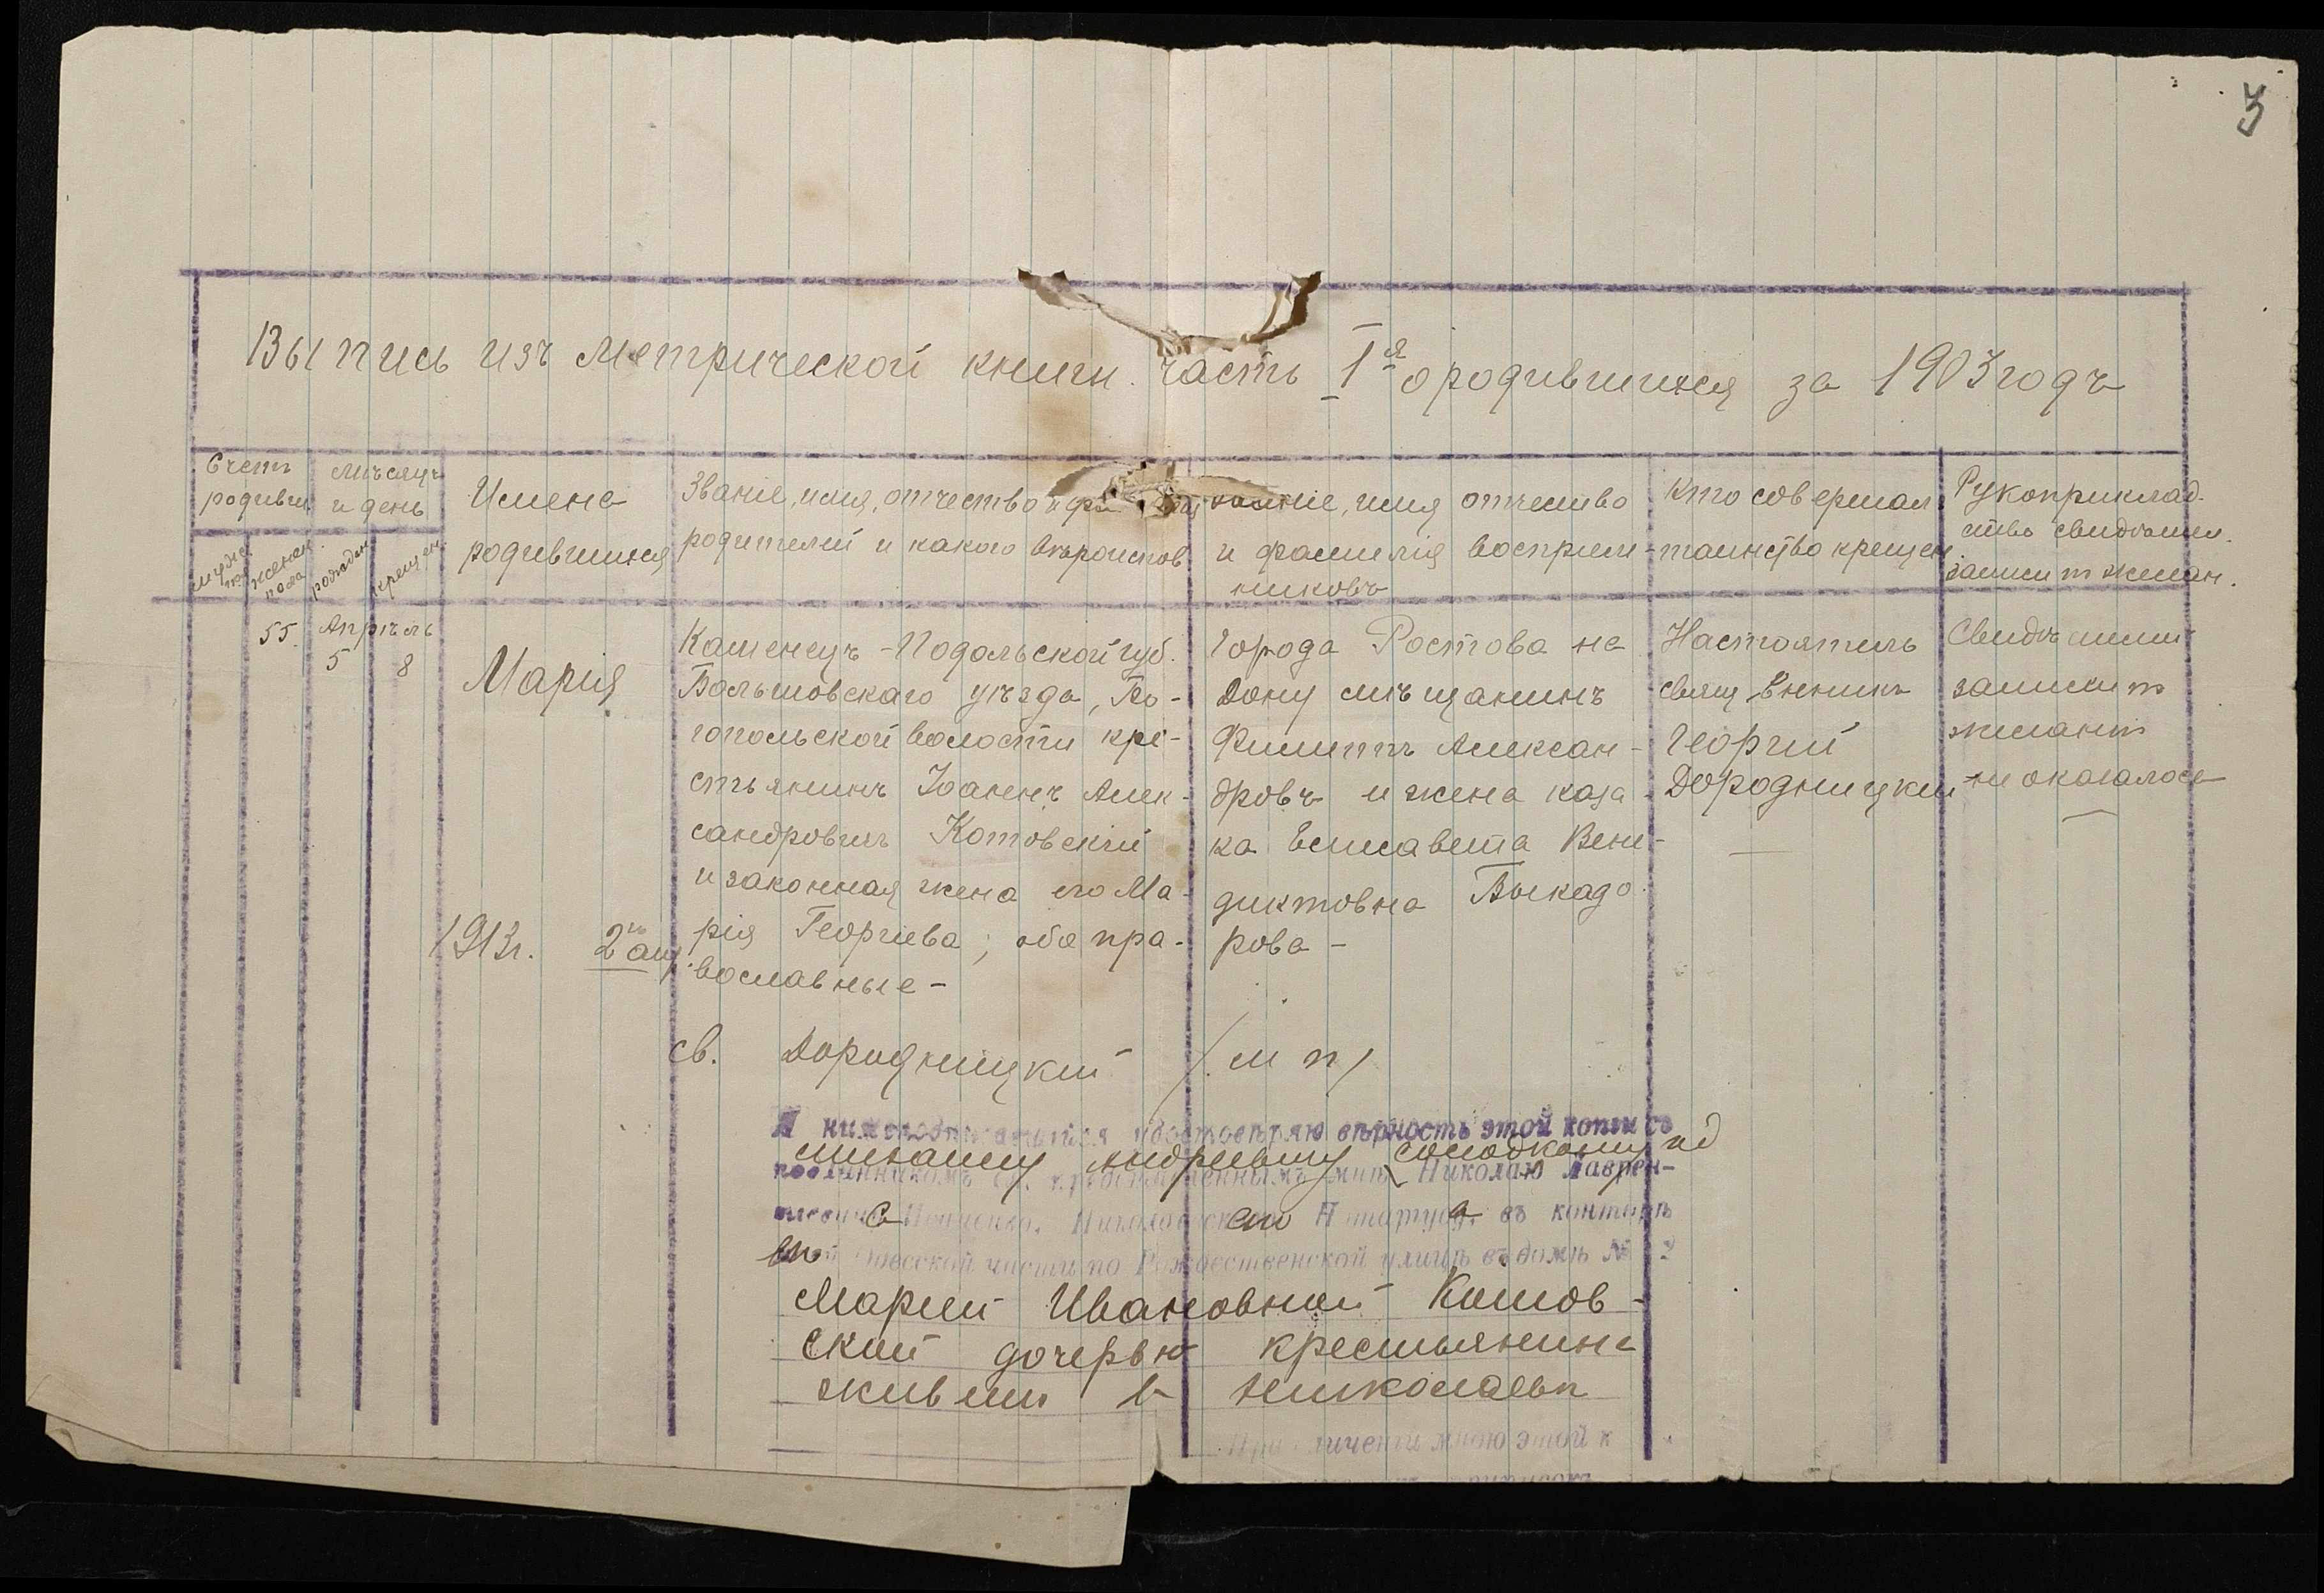 3
Выпись изъ метрической книги часть 1я о родившихся за 1903 годъ
Счетъ
родивш
мѣсяцъ
и день
мужс.
пол
женск.
пола
рожден
крещен
Имена
родившихся
Званіе, имя, отчество и фа
родителей и какого вѣроиспов
званіе, имя отчество
и фамилія воспріем-
никовъ
Кто совершал
таинство крещен.
Рукоприклад.
ство свидѣтел.
записи т желан.
55
Апрѣль
5
8
Марія
Каменецъ-Подольской губ.
Бальтовскаго уѣзда, Гео-
гопольской волости кре-
стьянинъ Іоаннъ Алек-
сандровичъ Котовскій
и законная жена его Ма-
рія Георгіева; оба пра-
вославные-
Города Ростова на
Дону мѣщанинъ
Филиппъ Алексан-
дровъ и жена каза
ка Елисавета Вене-
диктовна Выкадо
рова-
Настоятель
священникъ
Георгій
Дородницкій
Свидѣтели
записи т
желанія
не оказалось
1913г. 2го апр.
св. Дородницкій / м п /
Я нижеподписавшійся удостовѣряю вѣрность этой копіи съ
Михаилу Андреевичу Солодкому
подлинникомъ Николаю Лаврен-
Нотаріуса, въ конторѣ
части по Рождественской улицѣ въ домѣ №
Маріей Ивановной Котов-
ской дочерью крестьянина
живущ въ Николаевѣ
При сличеніи мною этой к